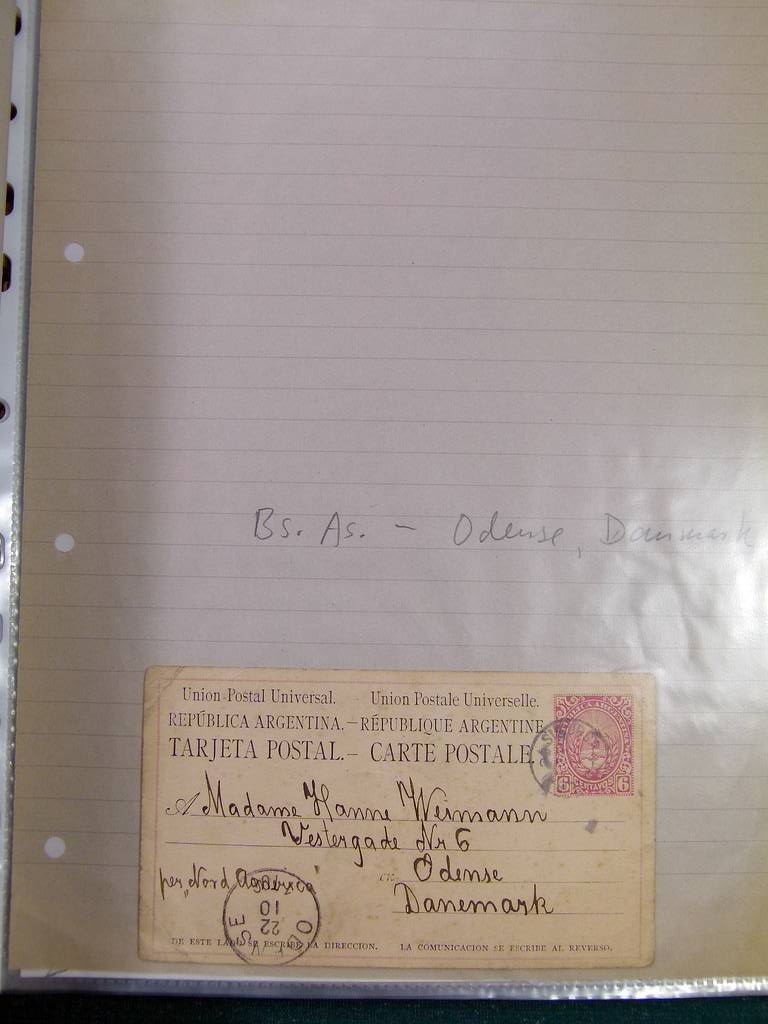 Bs. As. - Odense, Danmark
Union Postal Universal. Union Postale Universelle.
REPÚBLICA ARGENTINA.–RÉPUBLIQUE ARGENTINE
TARJETA POSTAL.– CARTE POSTALE.
6 CENTAVOS 6
A Madame Hanne Weimann
Vestergade Nr 6
per "Nord America" en Odense
Danemark
22
10
DE ESTE LADO SE ESCRIBE LA DIRECCION. LA COMUNICACION SE ESCRIBE AL REVERSO.